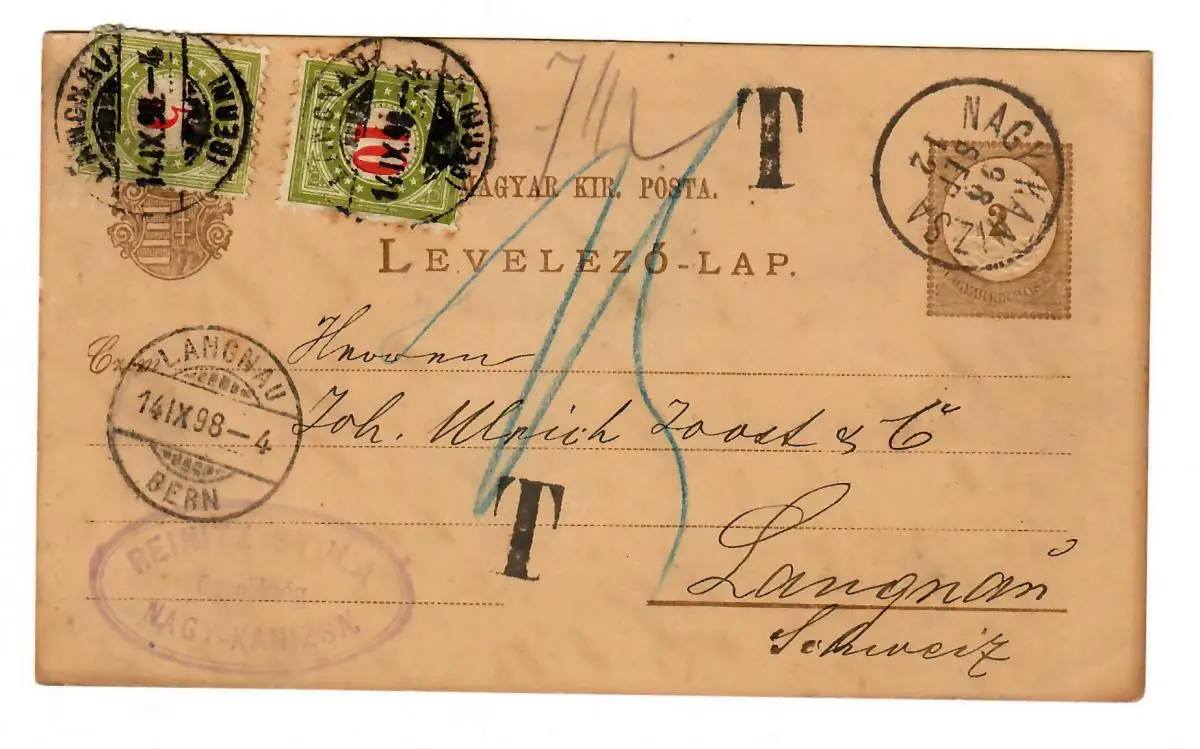 LANGNAU
14 IX 98-4
(BERN)
5
LANGNAU
14 IX 98-4
(BERN)
10
T
NAGY-KANIZSA
98
SEP
12
2
MAGYAR KIR. POSTA.
LEVELEZŐ-LAP.
Czím
Herren
Joh. Ulrich Joost & Cº
LANGNAU
14 IX 98-4
BERN
T
15
Langnau
Schweiz
NAGY-KANIZSA